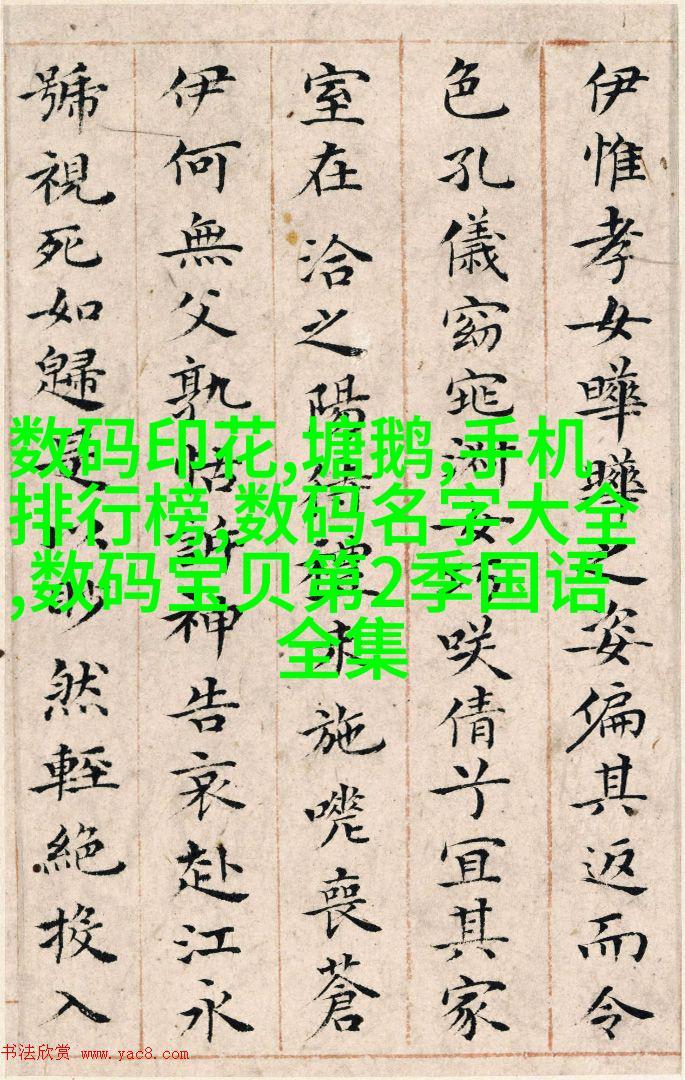 伊惟孝女曄曄之姿偏其返而令
色孔儀窈窕淑女巧咲倩兮宜其家
室在洽之陽待禮未施嗟喪蒼
伊何無父孰怙訴神告哀赴江永
號視死如歸是以眇然輕絕投入
数码印花,塘鹅,手机
排行榜,数码名字大全
,数码宝贝第2季国语
全集
书法欣赏 www.yac8.com